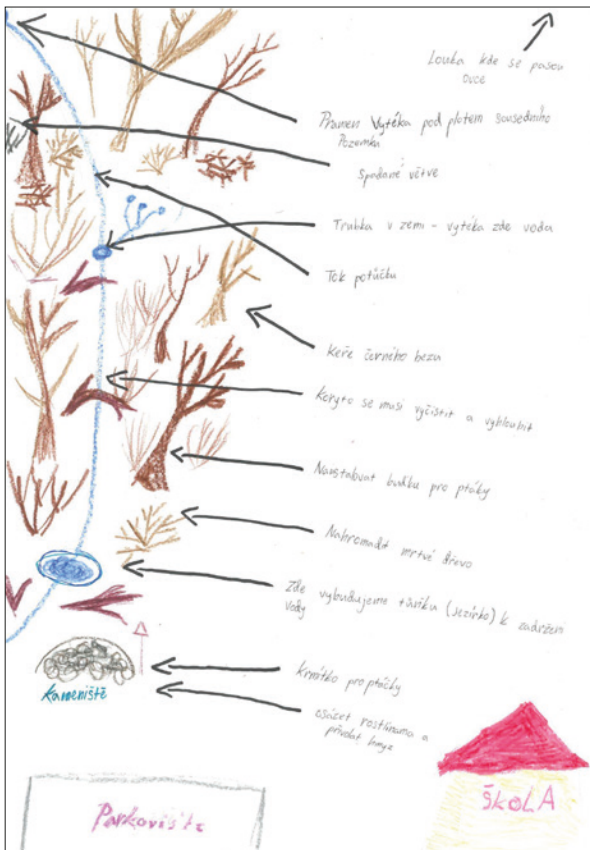 Louka kde se pasou
ovce
Pramen Vytéka pod plotem sousedního
Pozemku
Spadané větve
Trubka v zemi - vytéka zde voda
Tok potůčku
Keře černého bezu
Koryto se musí vyčistit a vyhloubit
Nainstalovat budku pro ptáky
Nahromadit mrtvé dřevo
Zde vybudujeme tůňku (jezírko) k zadržení
vody
krmítko pro ptáčky
Kameniště
osázet rostlinama a
přivolat hmyz
ŠKOLA
Parkoviště